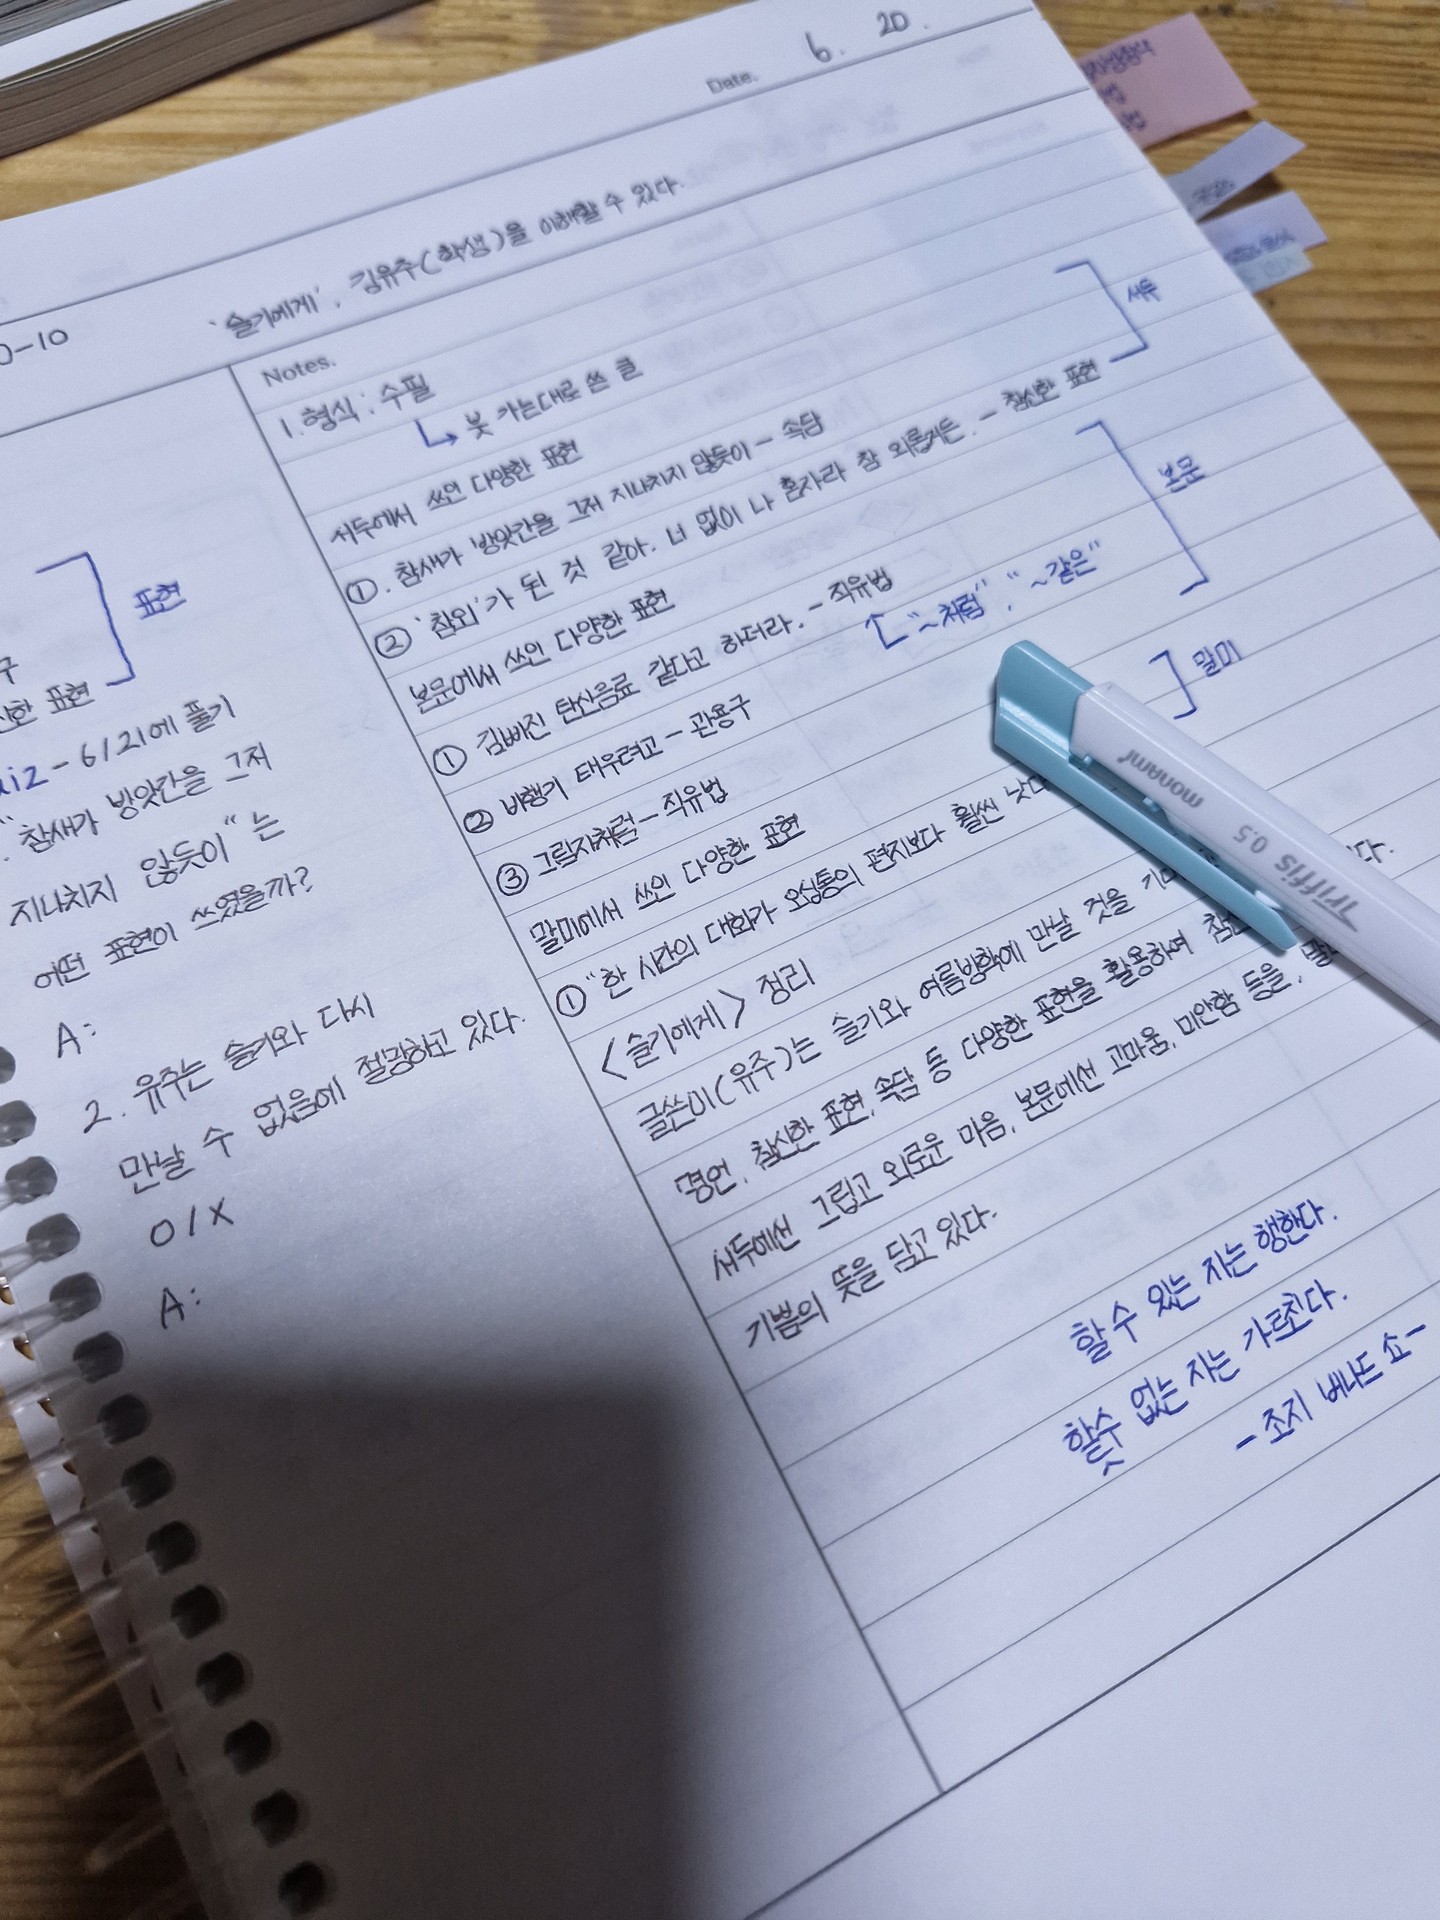 Date. 6. 20.
0-10
'슬기에게', 김유주(학생)을 이해할 수 있다.
표현
구
한 표현
- 6/21에 풀기
"참새가 방앗간을 그저
지나치지 않듯이"는
어떤 표현이 쓰였을까?
A:
2. 유주는 슬기와 다시
만날 수 없음에 절망하고 있다.
O/X
A:
Notes.
1. 형식 : 수필
↳ 붓 가는대로 쓴 글
서두에서 쓰인 다양한 표현
①. 참새가 방앗간을 그저 지나치지 않듯이 - 속담
② '참외'가 된 것 같아. 너 없이 나 혼자라 참 외롭거든. - 참신한 표현
서두
본문에서 쓰인 다양한 표현
① 김빠진 탄산음료 같다고 하더라. - 직유법
"~처럼", "~같은"
② 비행기 태우려고 - 관용구
③ 그림자처럼 - 직유법
본문
말미에서 쓰인 다양한 표현
① "한 시간의 대화가 오십통의 편지보다 훨씬 낫다
말미
<슬기에게> 정리
글쓴이(유주)는 슬기와 여름방학에 만날 것을 다.
명언, 참신한 표현, 속담 등 다양한 표현을 활용하여
서두에선 그립고 외로운 마음, 본문에선 고마움, 미안함 등을,
기쁨의 뜻을 담고 있다.
할 수 있는 자는 행한다.
할 수 없는 자는 가르친다.
- 조지 버나드 쇼 -
monami
TriFFis 0.5